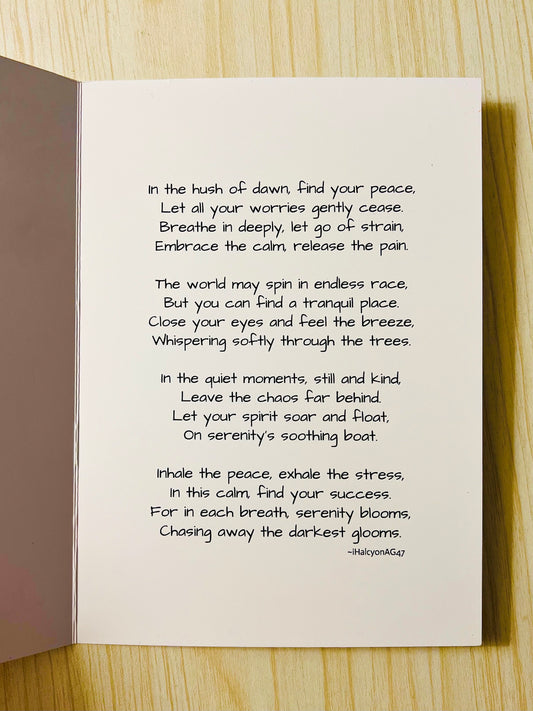 In the hush of dawn, find your peace,
Let all your worries gently cease.
Breathe in deeply, let go of strain,
Embrace the calm, release the pain.
The world may spin in endless race,
But you can find a tranquil place.
Close your eyes and feel the breeze,
Whispering softly through the trees.
In the quiet moments, still and kind,
Leave the chaos far behind.
Let your spirit soar and float,
On serenity's soothing boat.
Inhale the peace, exhale the stress,
In this calm, find your success.
For in each breath, serenity blooms,
Chasing away the darkest glooms.
~iHalcyonAG47